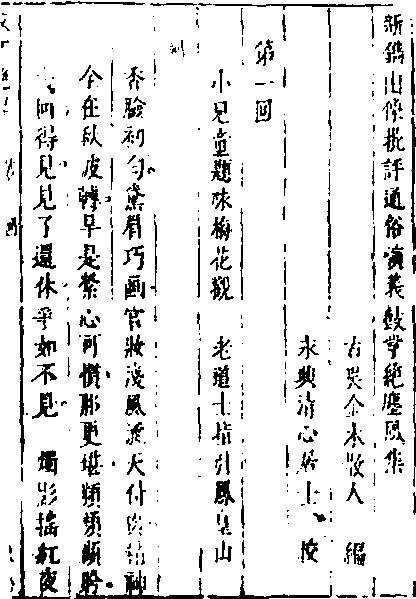 新鐫出像批評通俗演義鼓掌絕塵風集
古吳金木散人 編
永興清心居士 校
第一回
小兒童題咏梅花觀 老道士指引鳳皇山
香臉初勻黛眉巧画宮妝淺風流天付與精神
全在秋波轉早是縈心可慣那更堪頻頻顧盼
回得見見了還休爭如不見 燭影搖紅夜